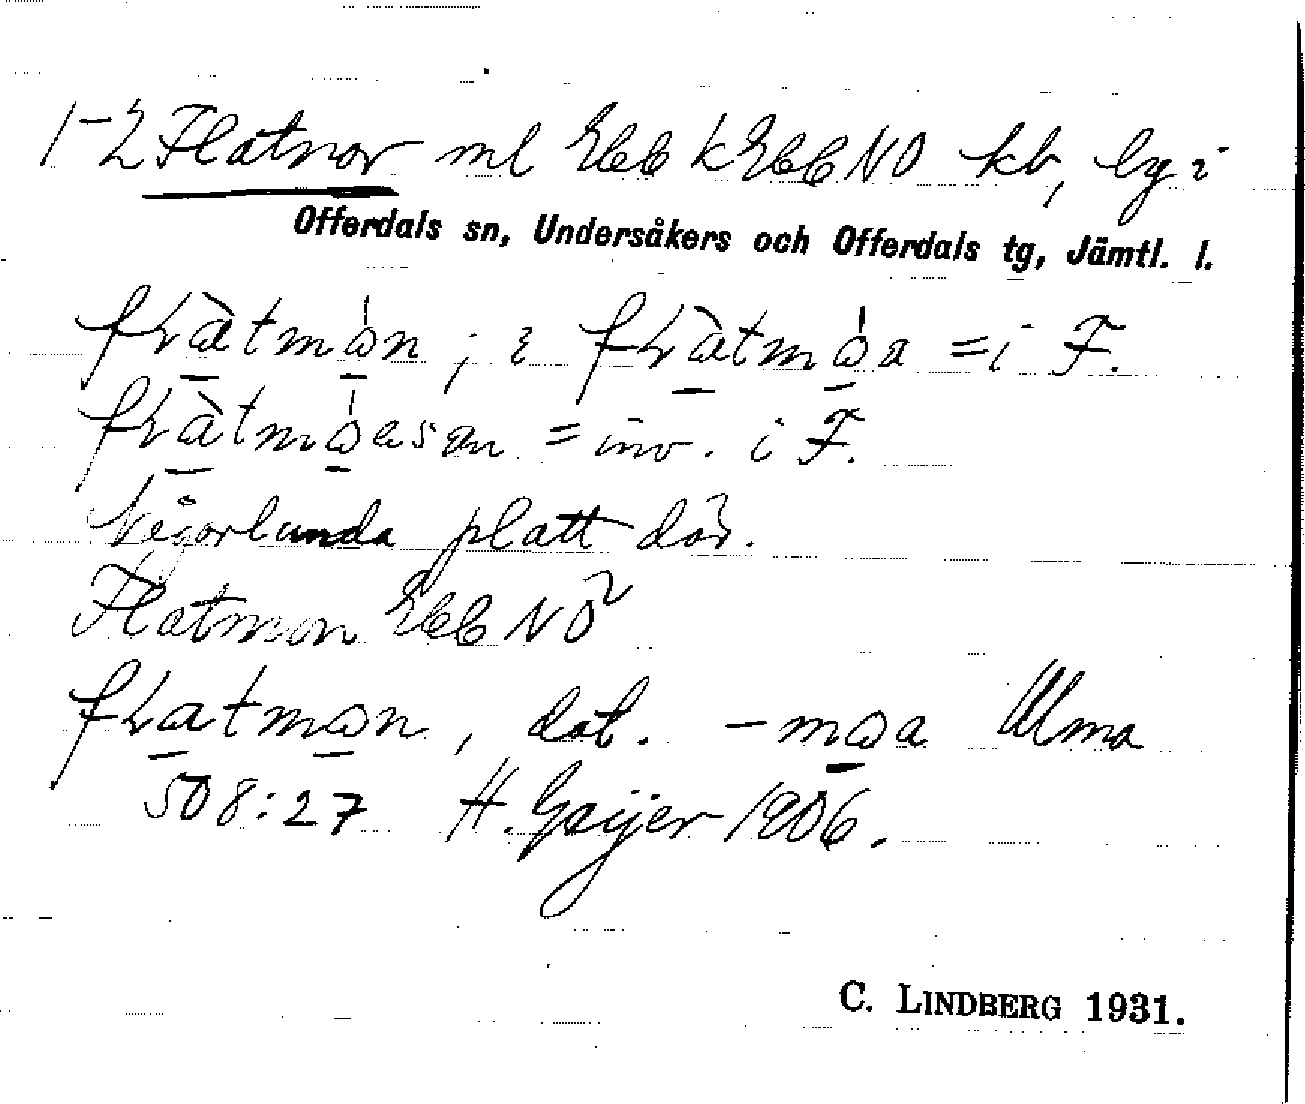 1-2 Flatnor ml Ebb kEbb NO kb, by i
Offerdals sn, Undersåkers och Offerdals tg, Jämtl. l.
flàtmòn ; i flàtmòa = i F.
flàtmòasan = inv. i F.
Någorlunda platt där.
Flatmon Ebb NO
flatmon, dat. -moa Ulma
508:27 H. Geijer 1906.
C. LINDBERG 1931.